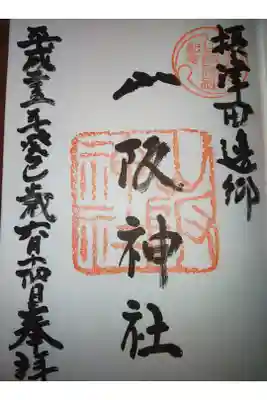 摂津田辺郷
山阪神社
平成廿五年癸巳歳六月十四日奉拝